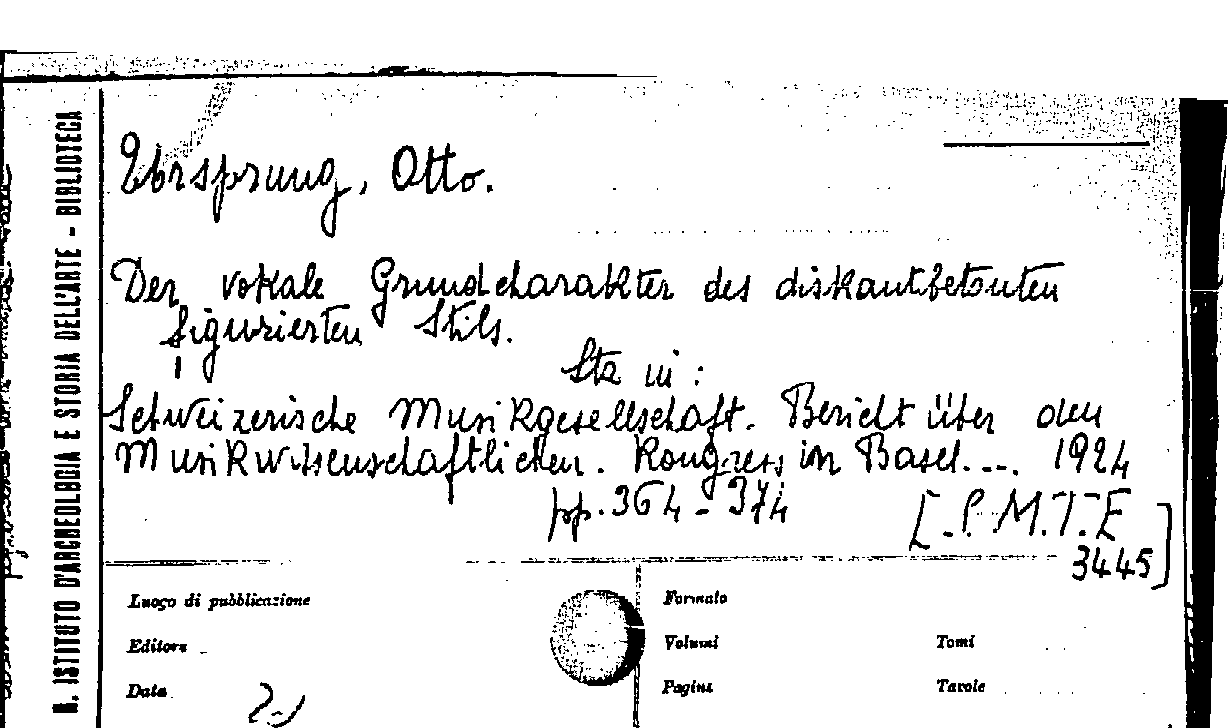 R. ISTITUTO D'ARCHEOLOGIA E STORIA DELL'ARTE - BIBLIOTECA
Ursprung, Otto.
Der vokale Grundcharakter des diskantbetonten
figurierten Stils.
Sta in:
Schweizerische Musikgesellschaft. Bericht über den
Musikwissenschaftlichen. Kongress in Basel.... 1924
pp. 364-374
[.P.M.T.E
3445]
Luogo di pubblicazione
Formato
Editore
Volumi
Tomi
Data
Pagine
Tavole